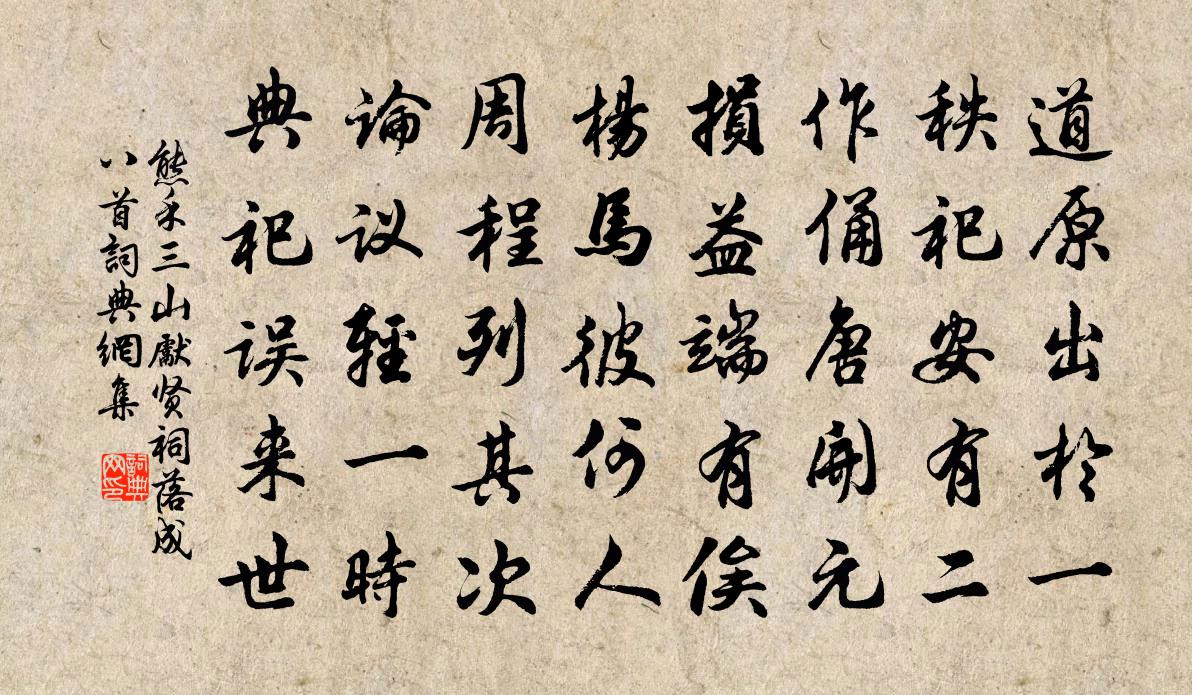 道原出於一
秩祀安有二
作俑唐開元
損益端有俟
楊馬彼何人
周程列其次
論议輕一時
典祀误来世
熊禾三山獻贤祠落成
八首詞典網集
詞典
网印